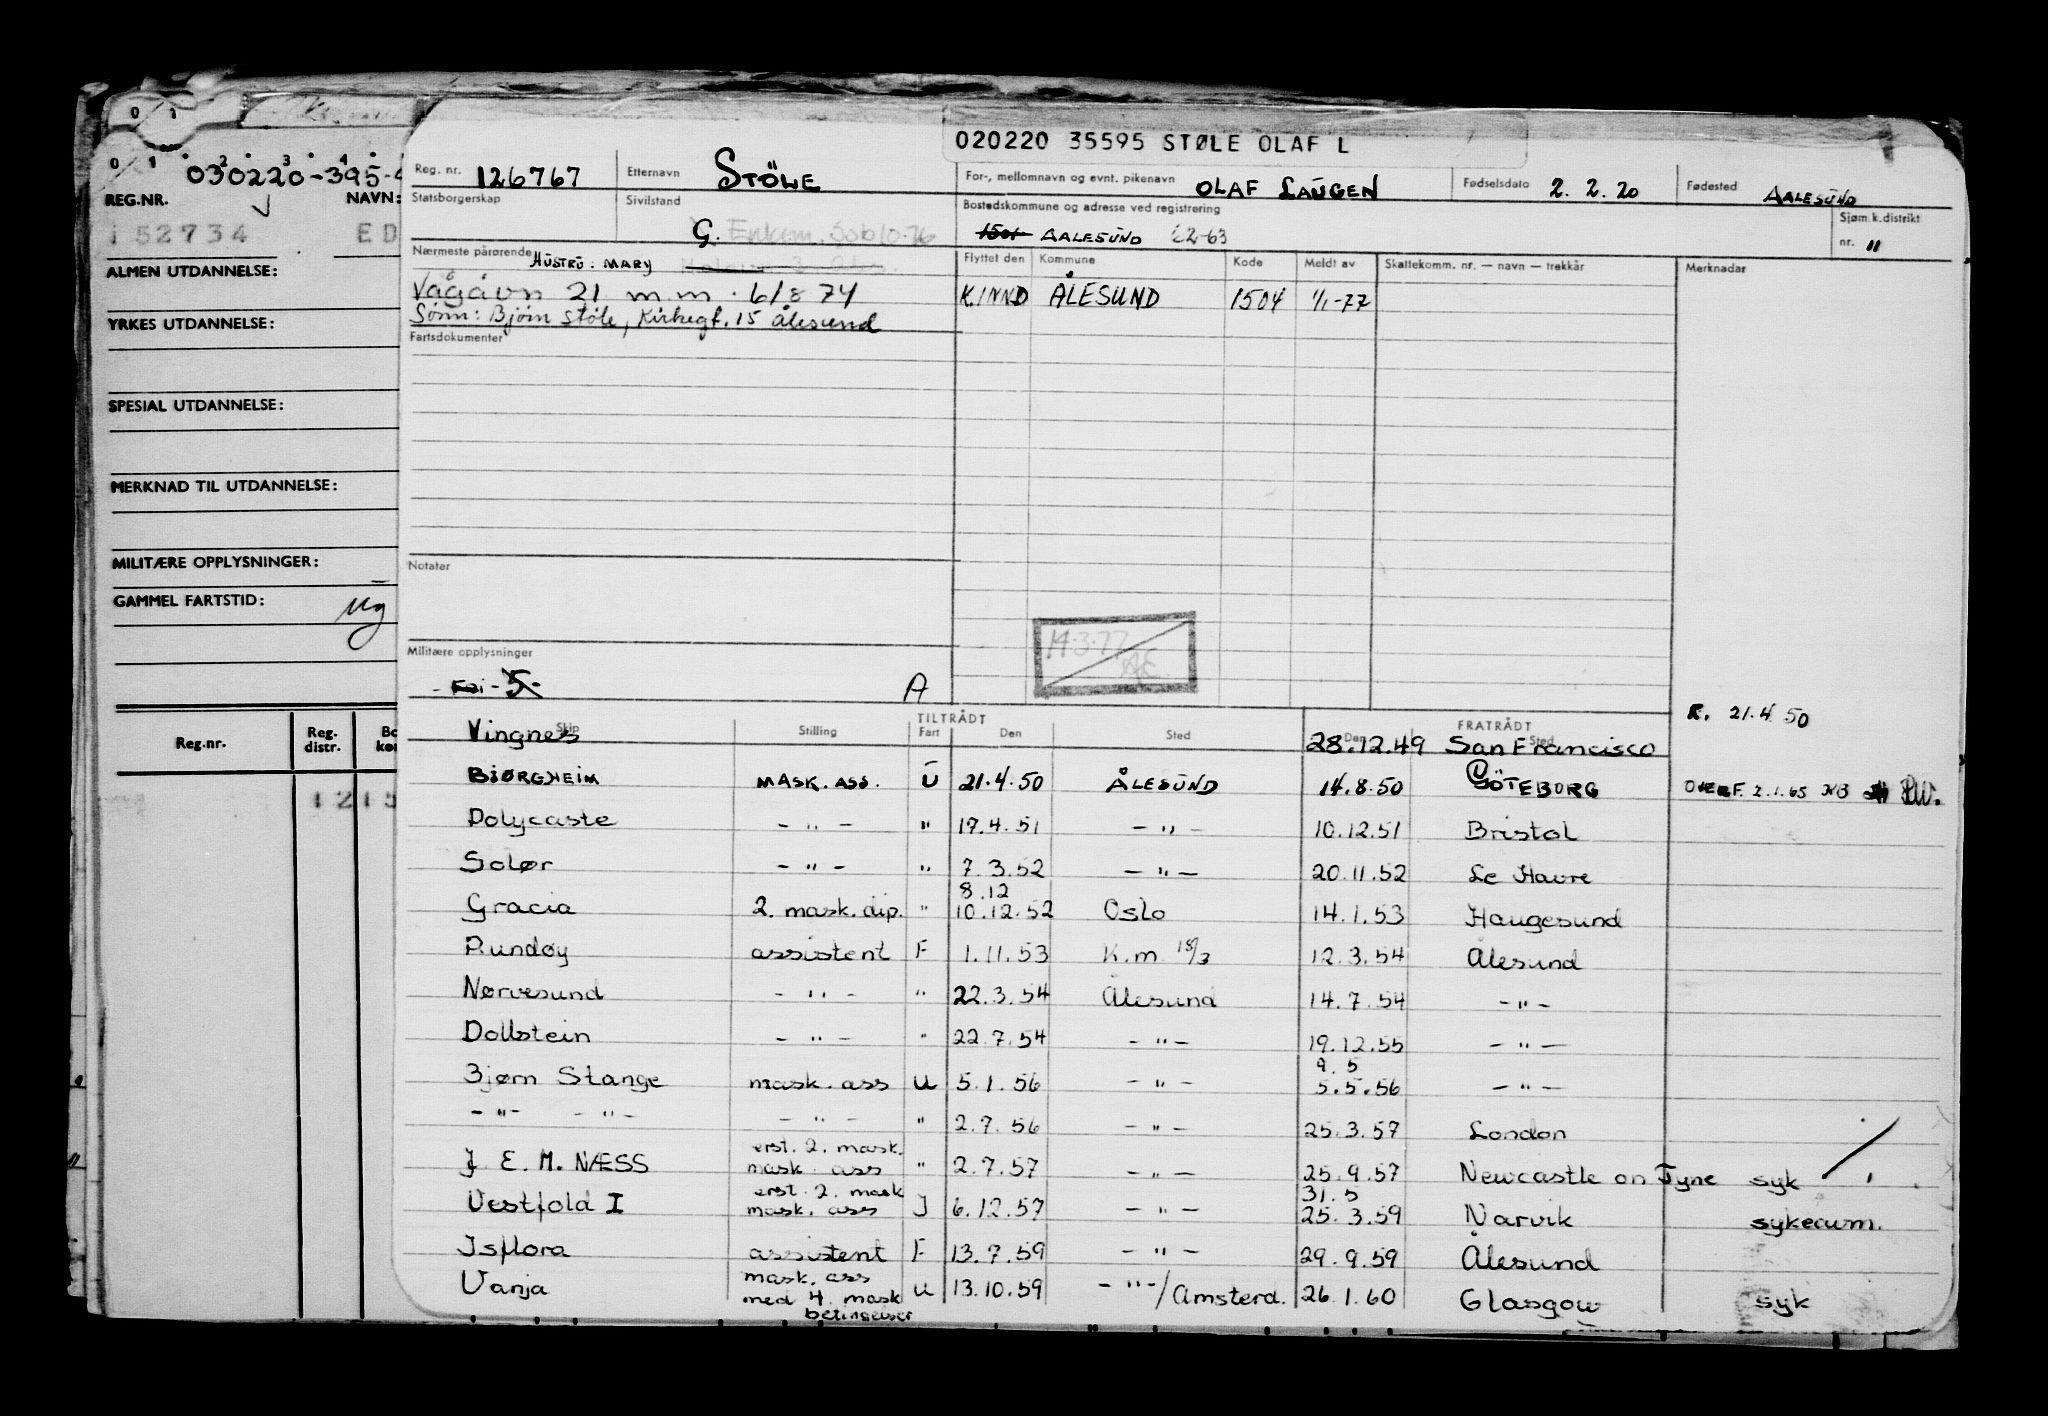 020220 35595 STØLE OLAF L
030220-395-4
REG.NR. NAVN:
152734 ED
ALMEN UTDANNELSE:
YRKES UTDANNELSE:
SPESIAL UTDANNELSE:
MERKNAD TIL UTDANNELSE:
MILITÆRE OPPLYSNINGER:
GAMMEL FARTSTID: Ug
Reg.nr. Reg. distr.
1215
Reg. nr. 126767 Etternavn STÖLE For-, mellomnavn og evnt. pikenavn OLAF LAUGEN Fødselsdato 2.2.20 Fødested AALESUND
Statsborgerskap Sivilstand G. Enkem. Ssb 10-76 Bostedskommune og adresse ved registrering 1501 AALESUND 62-63 Sjøm.k.distrikt nr. 11
Nærmeste pårørende HUSTRU: MARY Flyttet den Kommune Kode Meldt av Skattekomm. nr. — navn — trekkår Merknadar
Vågåvn 21 m.m. 6/8 74 KINND ÅLESUND 1504 1/1-77
Sønn: Bjørn Støle, Kirkegt. 15 Ålesund
Fartsdokumenter
Notater
14.3.77 AE.
Militære opplysninger
A
R. 21.4.50
TILTRÅDT FRATRÅDT
Skip Stilling Fart Den Sted Den Sted
Vingnes 28.12.49 San Francisco
BJØRGHEIM MASK. ASS. U 21.4.50 ÅLESUND 14.8.50 GÖTEBORG OVERF. 2.1.65
Polycaste - " - " 17.4.51 - " - 10.12.51 Bristol
Solør - " - " 7.3.52 - " - 20.11.52 Le Havre
8.12
Gracia 2. mask. dip. " 10.12.52 Oslo 14.1.53 Haugesund
Rundøy assistent F 1.11.53 K.m. 18/3 12.3.54 Ålesund
Nørvesund - " - " 22.3.54 Ålesund 14.7.54 - " -
Dollstein - " - " 22.7.54 - " - 19.12.55 - " -
9.5
Bjørn Stange mask. ass U 5.1.56 - " - 5.5.56 - " -
- " - - " - - " - " 2.7.56 - " - 25.3.57 London
erst. 2. mask.
J. E. M. NÆSS mask. ass " 2.7.57 - " - 25.9.57 Newcastle on Tyne syk
erst. 2. mask 31.5
Vestfold I mask. ass J 6.12.57 - " - 25.3.59 Narvik sykeaum.
Isflora assistent F 13.7.59 - " - 29.9.59 Ålesund
mask. ass
Vanja med 4. mask U 13.10.59 - " -/Amsterd. 26.1.60 Glasgow syk
betingelser